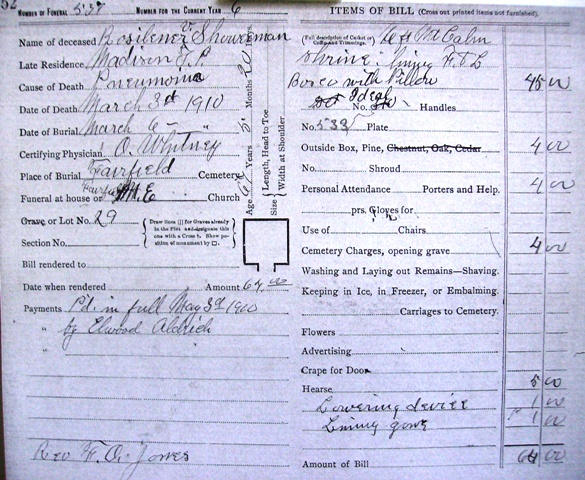 52
NUMBER OF FUNERAL 537 NUMBER FOR THE CURRENT YEAR 6
Name of deceased Rosilener V. Showerman
Late Residence, Madison T.P.
Cause of Death Pneumonia
Date of Death March 3rd 1910
Date of Burial March 6 - "
Certifying Physician, O. Whitney
Place of Burial Fairfield Cemetery
Funeral at house or Fairfield M.E. Church
Grave or Lot No. 29
Section No.
Draw lines [ ] for Graves already in the Plot and designate this one with a Cross †. Show position of monument by □.
Age Years Months Days
Size { Length, Head to Toe
Width at Shoulder
Bill rendered to
Date when rendered Amount 64.00
Payments Pd. in full May 3rd 1910
" by Elwood Aldrich
"
Rev F. A. Jones
ITEMS OF BILL (Cross out printed items not furnished).
(Full description of Casket or Coffin and Trimmings.)
Shrine: lining F. & L
with Pillow 45 00
Ideal
No. Handles
No. 533 Plate
Outside Box, Pine, Chestnut, Oak, Cedar 4 00
No. Shroud
Personal Attendance Porters and Help. 4 00
prs. Gloves for
Use of Chairs
Cemetery Charges, opening grave 4 00
Washing and Laying out Remains—Shaving.
Keeping in Ice, in Freezer, or Embalming.
Carriages to Cemetery.
Flowers
Advertising
Crape for Door
Hearse 5 00
Lowering device 1 00
Lining 1 00
Amount of Bill 64 00